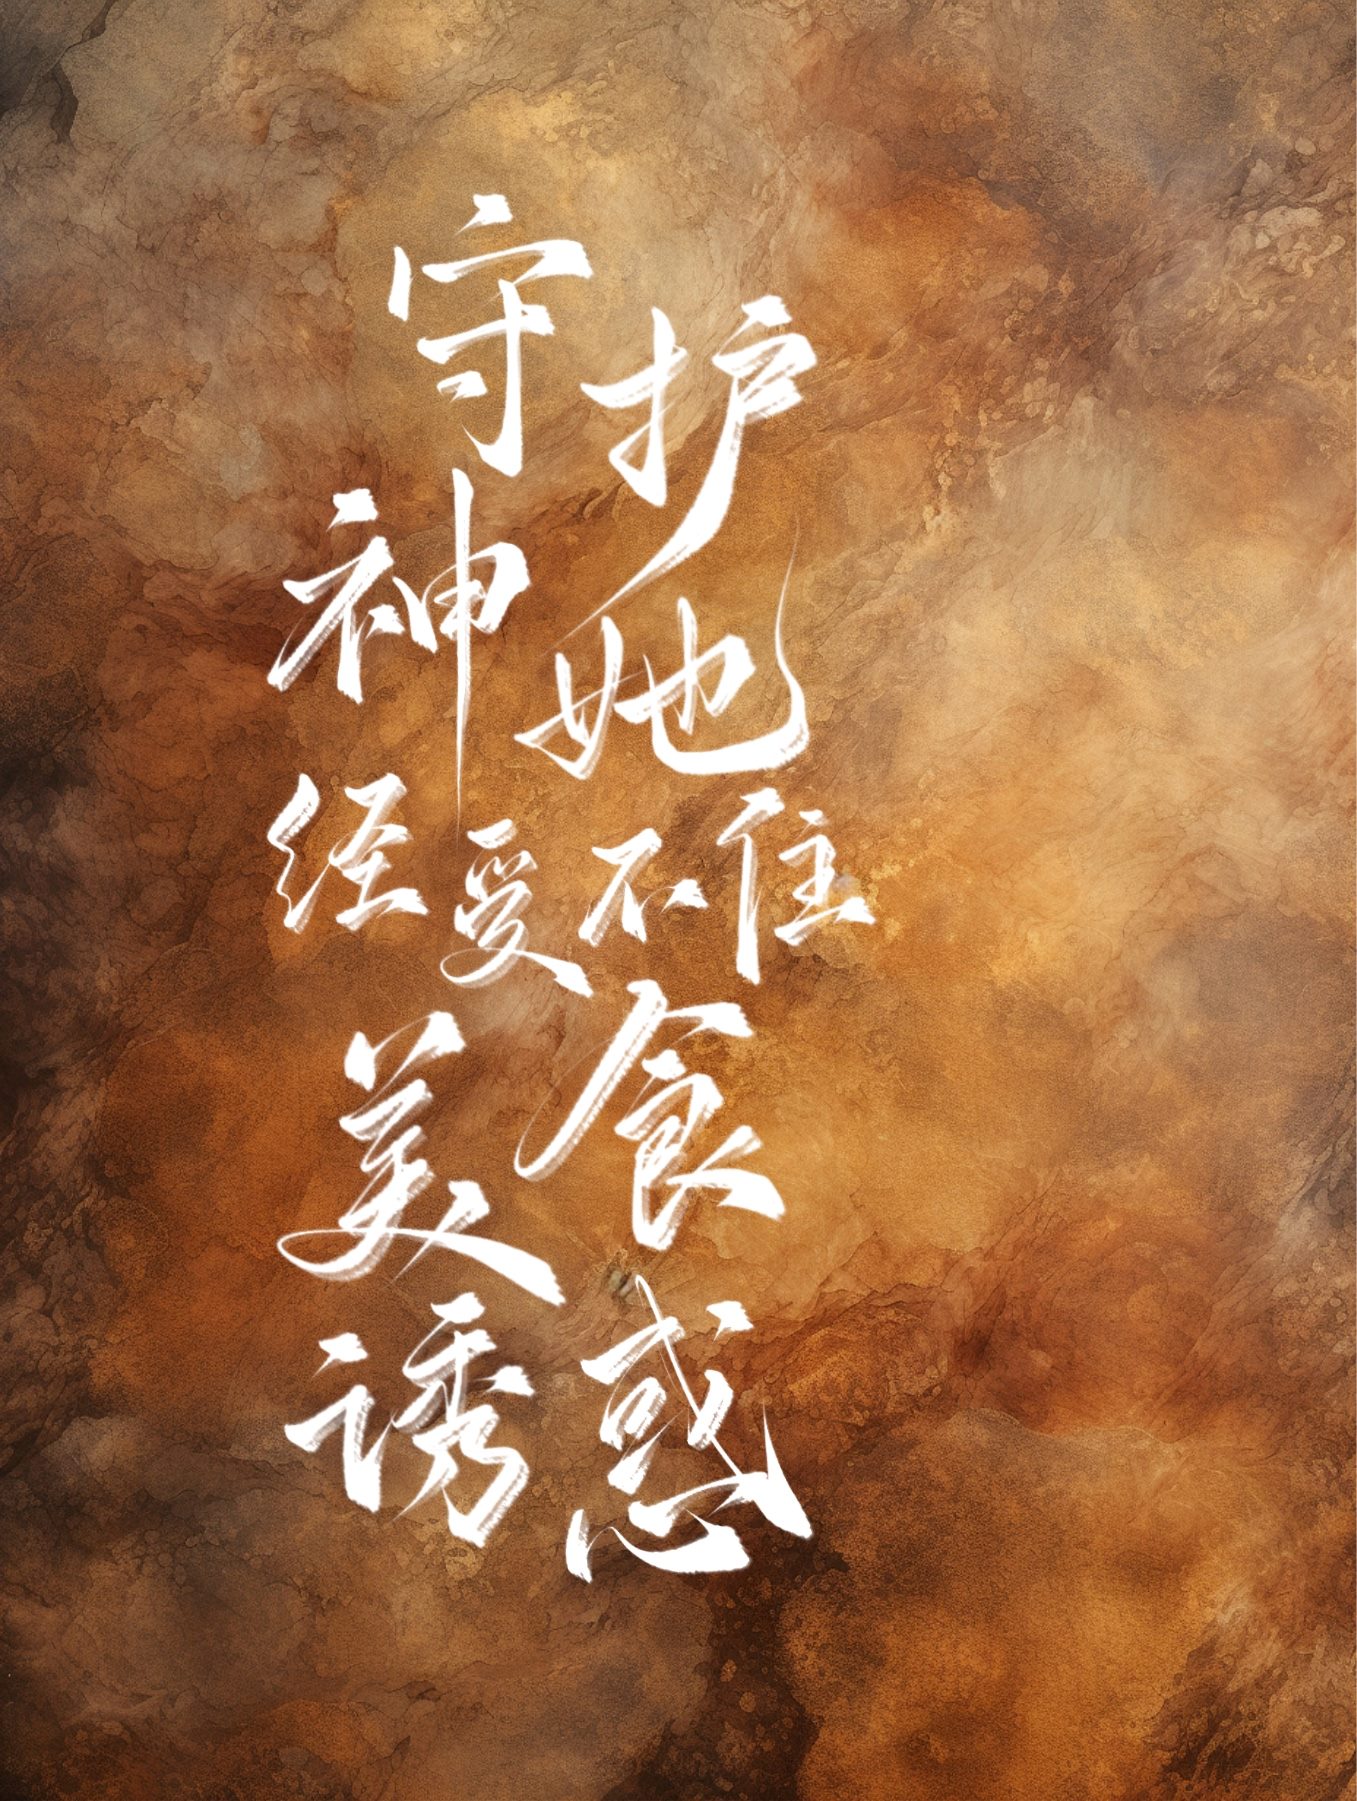 守护
神她
经受不住
美食
诱惑